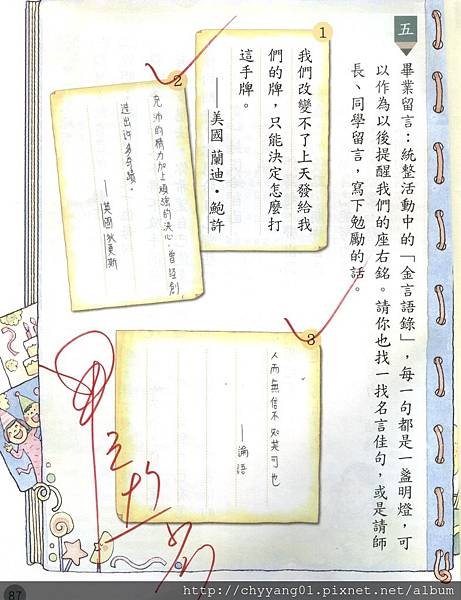 五
畢業留言：統整活動中的「金言語錄」，每一句都是一盞明燈，可
以作為以後提醒我們的座右銘。請你也找一找名言佳句，或是請師
長、同學留言，寫下勉勵的話。
1
我們改變不了上天發給我
們的牌，只能決定怎麼打
這手牌。
——美國 蘭迪・鮑許
2
充沛的精力加上頑強的決心，曾經創
造出許多奇蹟。
——英國狄更斯
3
人而無信不知其可也
——論語
87
http://chyyang01.pixnet.net/album